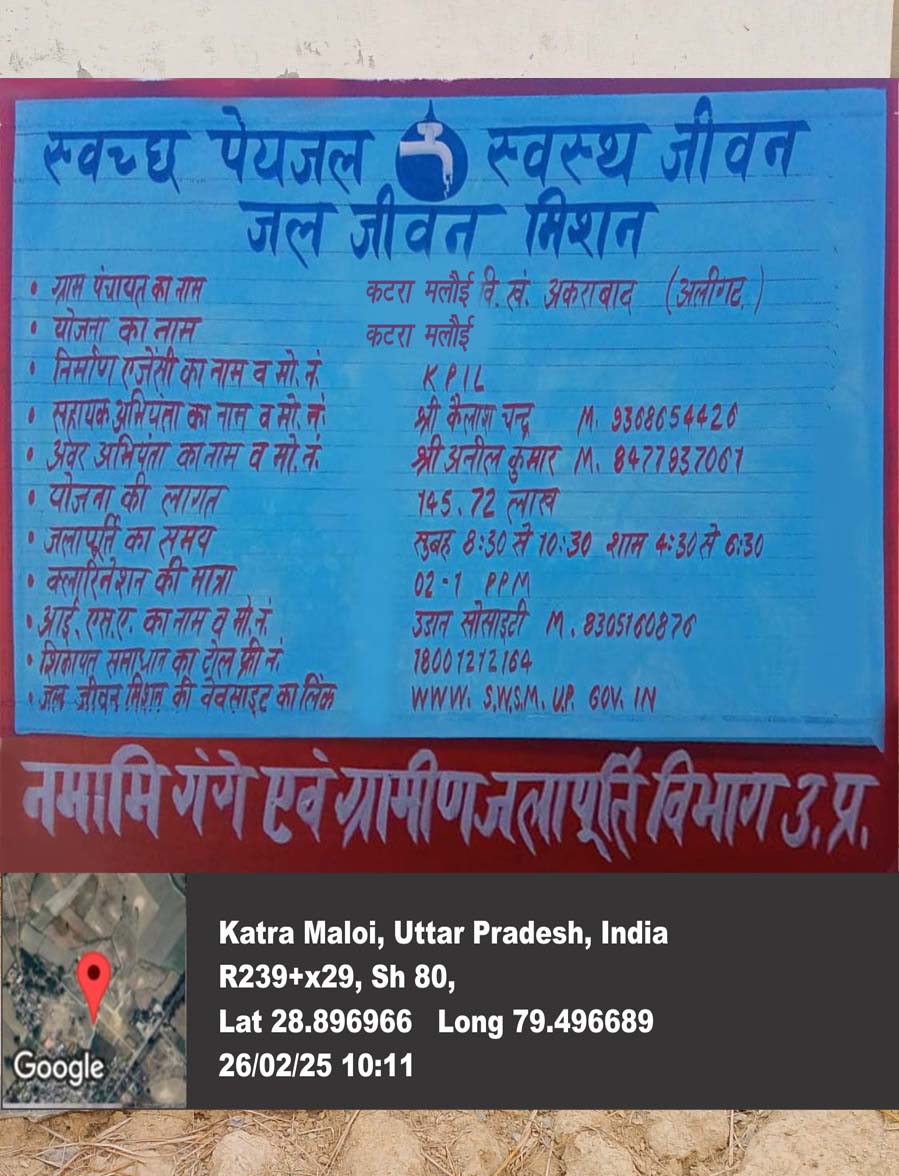 स्वच्छ पेयजल स्वस्थ जीवन
जल जीवन मिशन
• ग्राम पंचायत का नाम कटरा मलौई वि. खं. अकराबाद (अलीगढ़)
• योजना का नाम कटरा मलौई
• निर्माण एजेंसी का नाम व मो. नं. KPIL
• सहायक अभियंता का नाम व मो. नं. श्री कैलाश चन्द्र M. 9368654426
• अवर अभियंता का नाम व मो. नं. श्री अनील कुमार M. 8477837061
• योजना की लागत 145.72 लाख
• जलापूर्ति का समय सुबह 8:30 से 10:30 शाम 4:30 से 6:30
• क्लारिनेशन की मात्रा 02-1 PPM
• आई. एस.ए. का नाम व मो. नं. उडान सोसाइटी M. 8305160876
• शिकायत समाधान का टोल फ्री नं. 18001212164
• जल जीवन मिशन की वेबसाइट का लिंक WWW. S.W.S.M. U.P. GOV. IN
नमामि गंगे एवं ग्रामीण जलापूर्ति विभाग उ. प्र.
Katra Maloi, Uttar Pradesh, India
R239+x29, Sh 80,
Lat 28.896966 Long 79.496689
26/02/25 10:11
Google